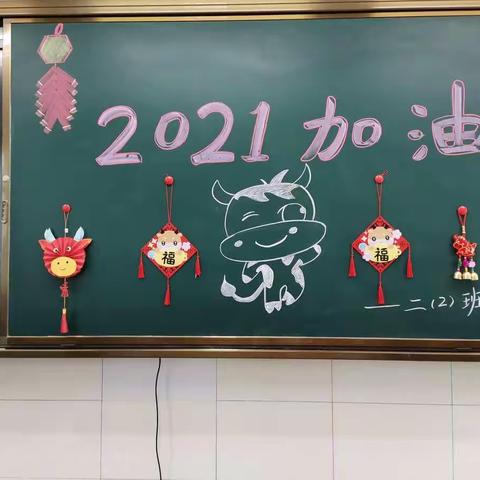 2021加油
福
福
——二(2)班